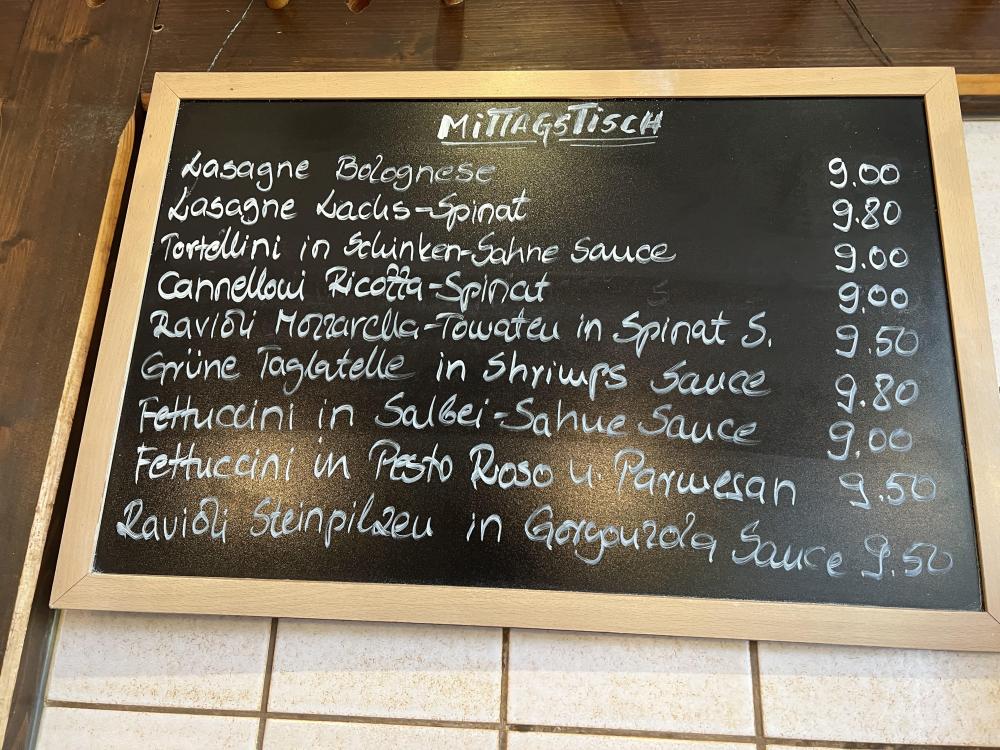 MITTAGSTISCH
Lasagne Bolognese 9.00
Lasagne Lachs-Spinat 9.80
Tortellini in Schinken-Sahne Sauce 9.00
Cannelloni Ricotta-Spinat 9.00
Ravioli Mozzarella-Tomaten in Spinat S. 9.50
Grüne Taglatelle in Shrimps Sauce 9.80
Fettuccini in Salbei-Sahne Sauce 9.00
Fettuccini in Pesto Roso u. Parmesan 9.50
Ravioli Steinpilzen in Gorgonzola Sauce 9.50